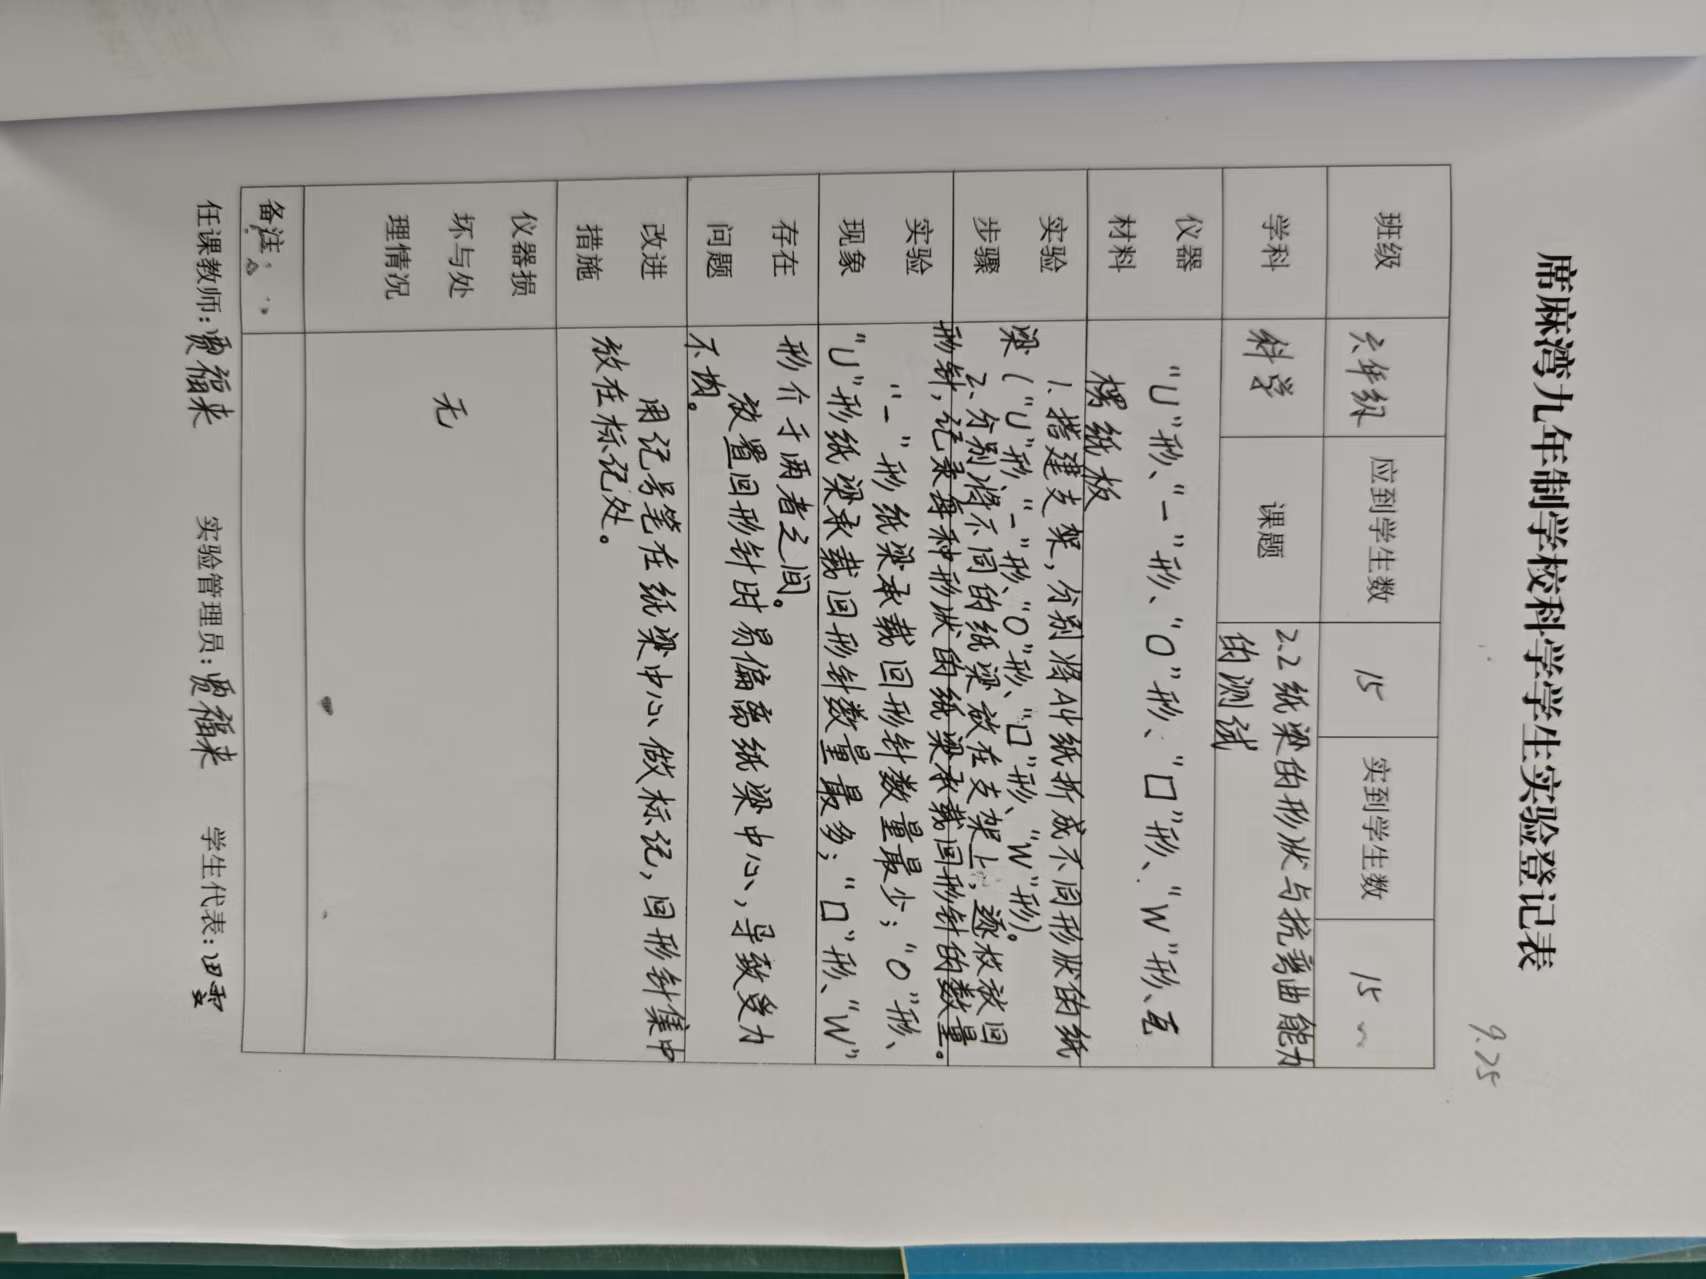 席麻湾九年制学校科学学生实验登记表
9.25
班级 六年级 应到学生数 15 实到学生数 15
学科 科学 课题 2.2纸梁的形状与抗弯曲能力
的测试
仪器
材料
"U"形、"一"形、"O"形、"口"形、"W"形、瓦
楞纸板
实验
步骤
1.搭建支架,分别将A4纸折成不同形状的纸
梁("U"形、"一"形、"O"形、"口"形、"W"形)。
2.分别将不同的纸梁放在支架上,逐枚放回
形针,记录每种形状的纸梁承载回形针的数量。
实验
现象
"一"形纸梁承载回形针数量最少;"O"形、
"U"形纸梁承载回形针数量最多;"口"形、"W"
形介于两者之间。
存在
问题
放置回形针时易偏离纸梁中心,导致受力
不均。
改进
措施
用记号笔在纸梁中心做标记,回形针集中
放在标记处。
仪器损
坏与处
理情况
无
备注
任课教师:贾福来 实验管理员:贾福来 学生代表:田雯